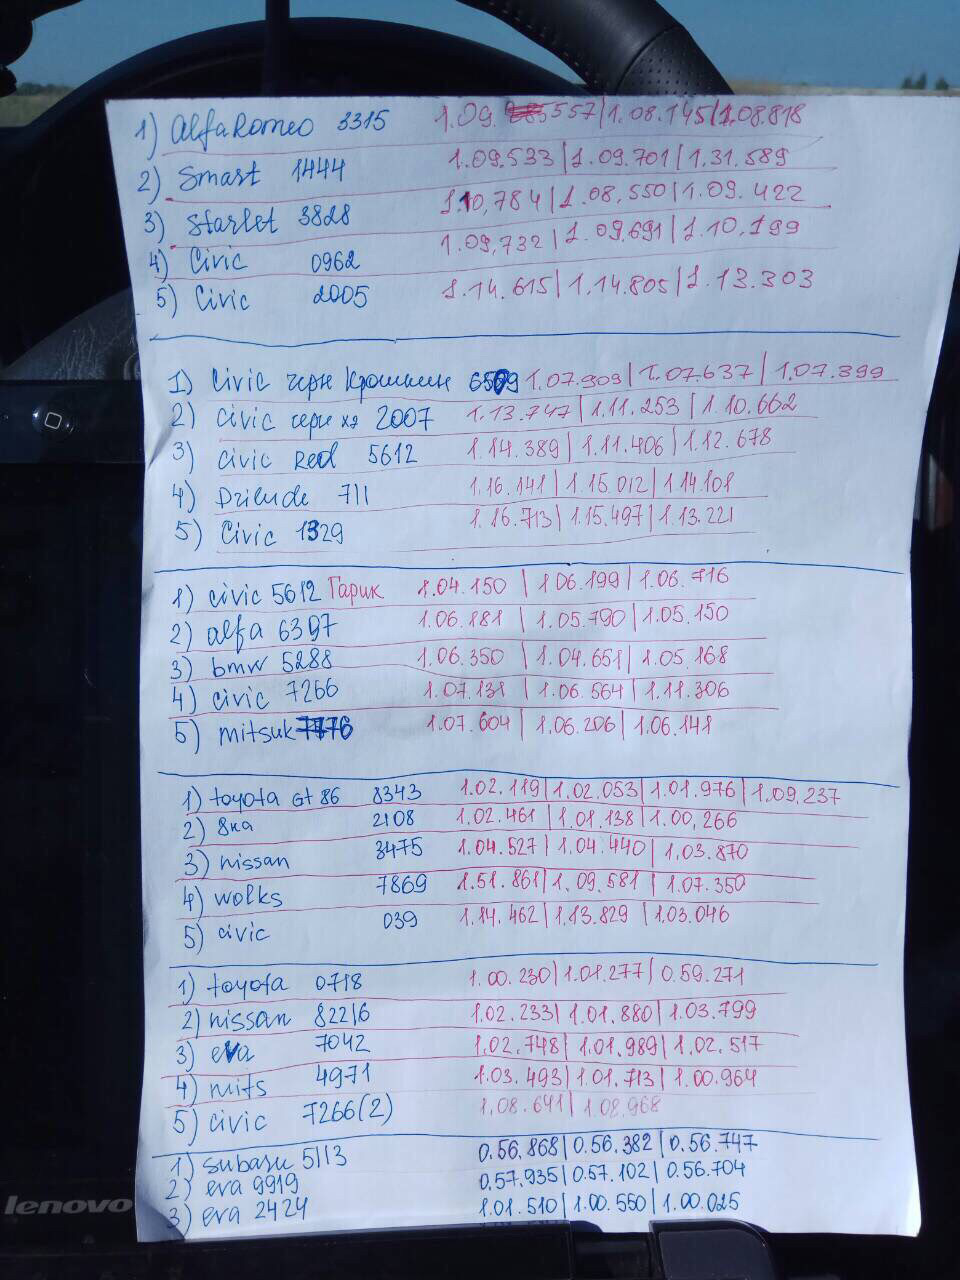 1) AlfaRomeo 3315 1.09.557 | 1.08.145 | 1.08.818
2) Smart 1444 1.09.533 | 1.09.701 | 1.31.589
3) Starlet 3828 1.10,784 | 1.08,550 | 1.09.422
4) Civic 0962 1.09,732 | 1.09,691 | 1.10,199
5) Civic 2005 1.14.615 | 1.14.805 | 1.13.303
1) Civic черн Крошкин 6509 1.07.909 | 1.07.637 | 1.07.399
2) Civic черн хэ 2007 1.13.747 | 1.11.253 | 1.10.662
3) Civic Red 5612 1.14.389 | 1.11.406 | 1.12.678
4) Prilude 711 1.16.141 | 1.15.012 | 1.14.101
5) Civic 1329 1.16.713 | 1.15.497 | 1.13.221
1) civic 5612 Гарик 1.04.150 | 1.06.199 | 1.06.716
2) alfa 6397 1.06.181 | 1.05.790 | 1.05.150
3) bmw 5288 1.06.350 | 1.04.651 | 1.05.168
4) civic 7266 1.07.131 | 1.06.564 | 1.11.306
5) mitsuk 7776 1.07.604 | 1.06.206 | 1.06.141
1) toyota GT 86 8343 1.02.119 | 1.02.053 | 1.01.976 | 1.09.237
2) 8ка 2108 1.02.461 | 1.01.138 | 1.00,266
3) nissan 3475 1.04.527 | 1.04.440 | 1.03.870
4) wolks 7869 1.51.861 | 1.09.581 | 1.07.350
5) civic 039 1.14.462 | 1.13.829 | 1.03.046
1) toyota 0718 1.00.230 | 1.01.277 | 0.59.271
2) nissan 82216 1.02.233 | 1.01.880 | 1.03.799
3) eva 7042 1.02.748 | 1.01.989 | 1.02.517
4) mits 4971 1.03.493 | 1.01.713 | 1.00.964
5) civic 7266(2) 1.08.641 | 1.08.968
1) subaru 5113 0.56.868 | 0.56.382 | 0.56.747
2) eva 9919 0.57.935 | 0.57.102 | 0.56.704
3) eva 2424 1.01.510 | 1.00.550 | 1.00.025
lenovo